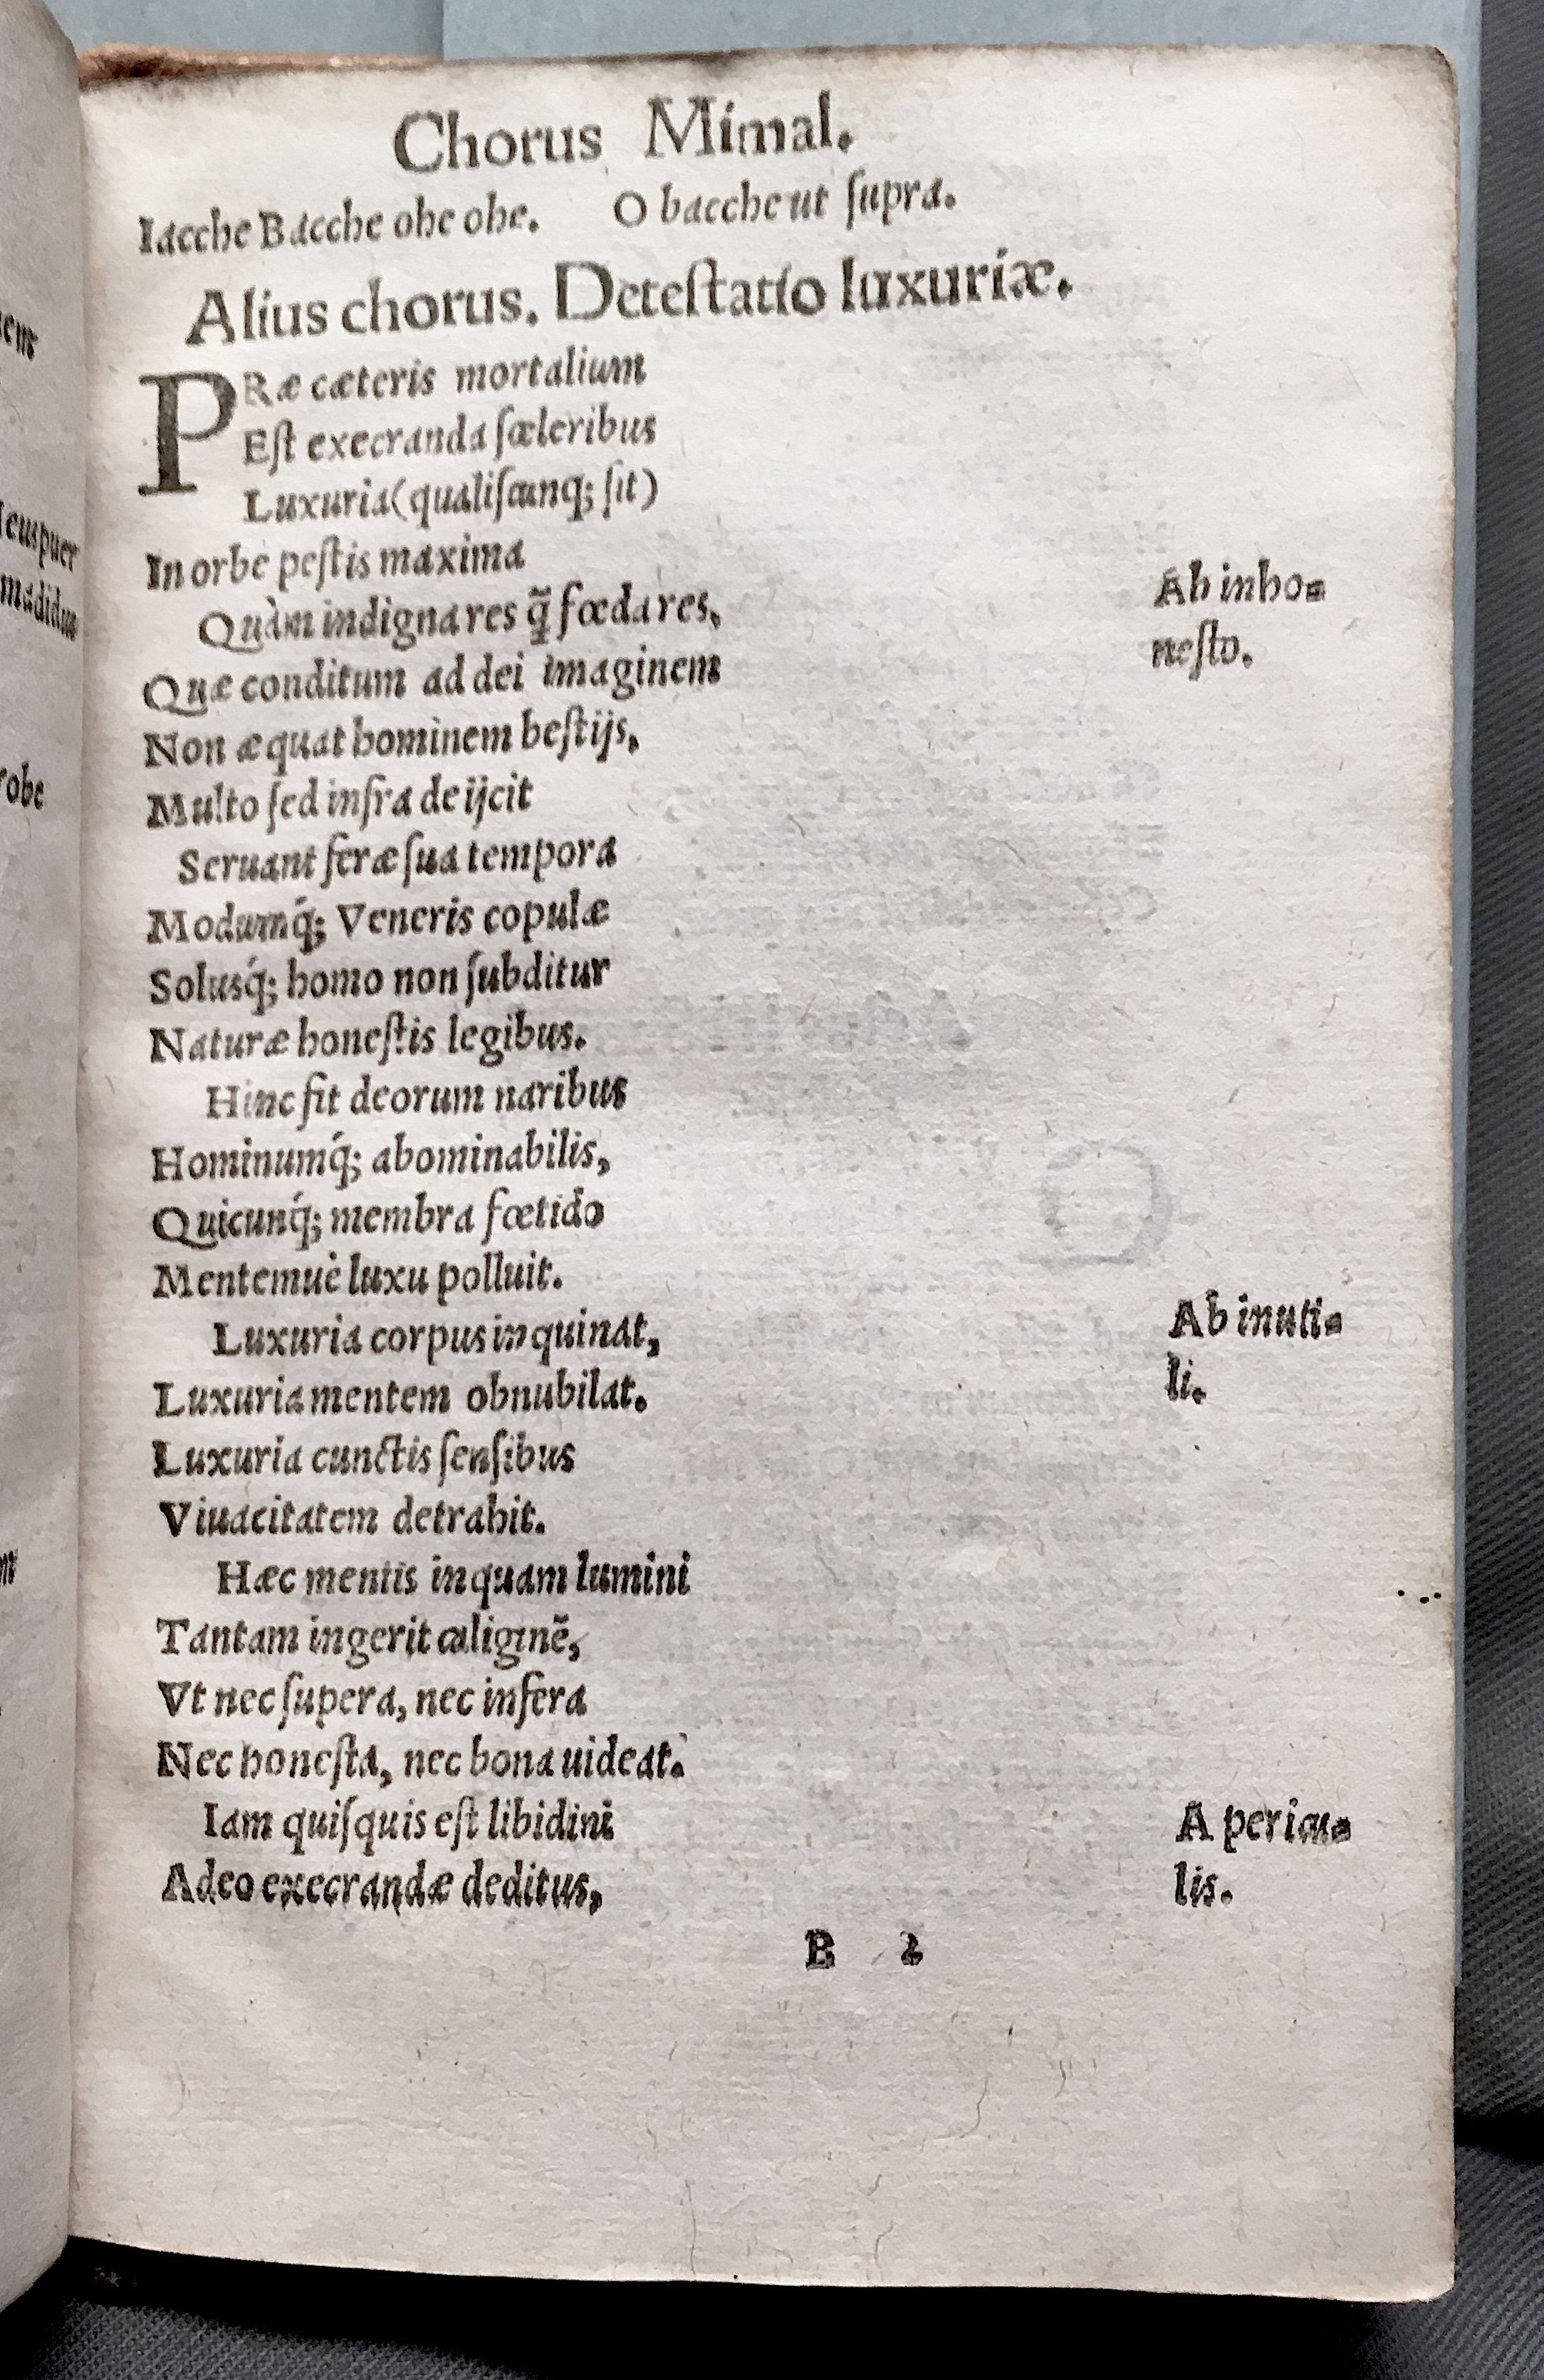 Chorus Mimal.
Iacche Bacche ohe ohe. O bacche ut ſupra.
Alius chorus. Deteſtatio luxuriæ.
PRæ cæteris mortalium
Eſt execranda ſceleribus
Luxuria (qualiſcunq; ſit)
In orbe peſtis maxima
Quàm indigna res q̃ fœda res,
Ab inho-
neſto.
Quæ conditum ad dei imaginem
Non æquat hominem beſtijs,
Multo ſed infra deijcit
Seruant feræ ſua tempora
Modumq́; Veneris copulæ
Solusq́; homo non ſubditur
Naturæ honeſtis legibus.
Hinc fit deorum naribus
Hominumq́; abominabilis,
Quicunq́; membra fœtido
Mentemuè luxu polluit.
Luxuria corpus inquinat,
Ab inuti-
li.
Luxuria mentem obnubilat.
Luxuria cunctis ſenſibus
Viuacitatem detrahit.
Hæc mentis inquam lumini
Tantam ingerit caliginẽ,
Vt nec ſupera, nec infera
Nec honeſta, nec bona uideat.
Iam quiſquis eſt libidini
A pericu-
lis.
Adeo execrandæ deditus,
B 2
puer
madidus
robe